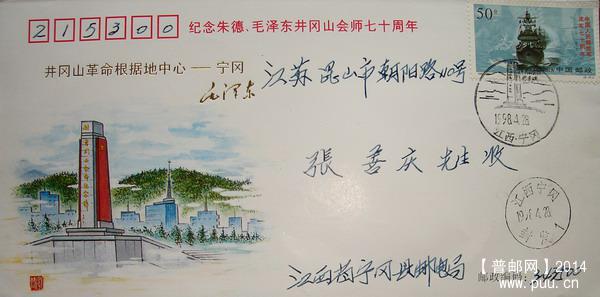 215300
纪念朱德、毛泽东井冈山会师七十周年
50分
中国邮政
井冈山革命根据地中心——宁冈
毛泽东
江苏昆山市朝阳路110号
1998.4.28
江西·宁冈
張善庆先生收
江西宁冈
江西省宁冈县邮电局
邮政编码:
【普邮网】2014
www.puu.cn